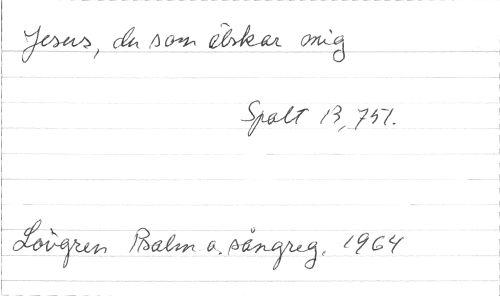 Jesus, du som älskar mig
Spalt 13,751.
Lövgren Psalm o. sångreg. 1964